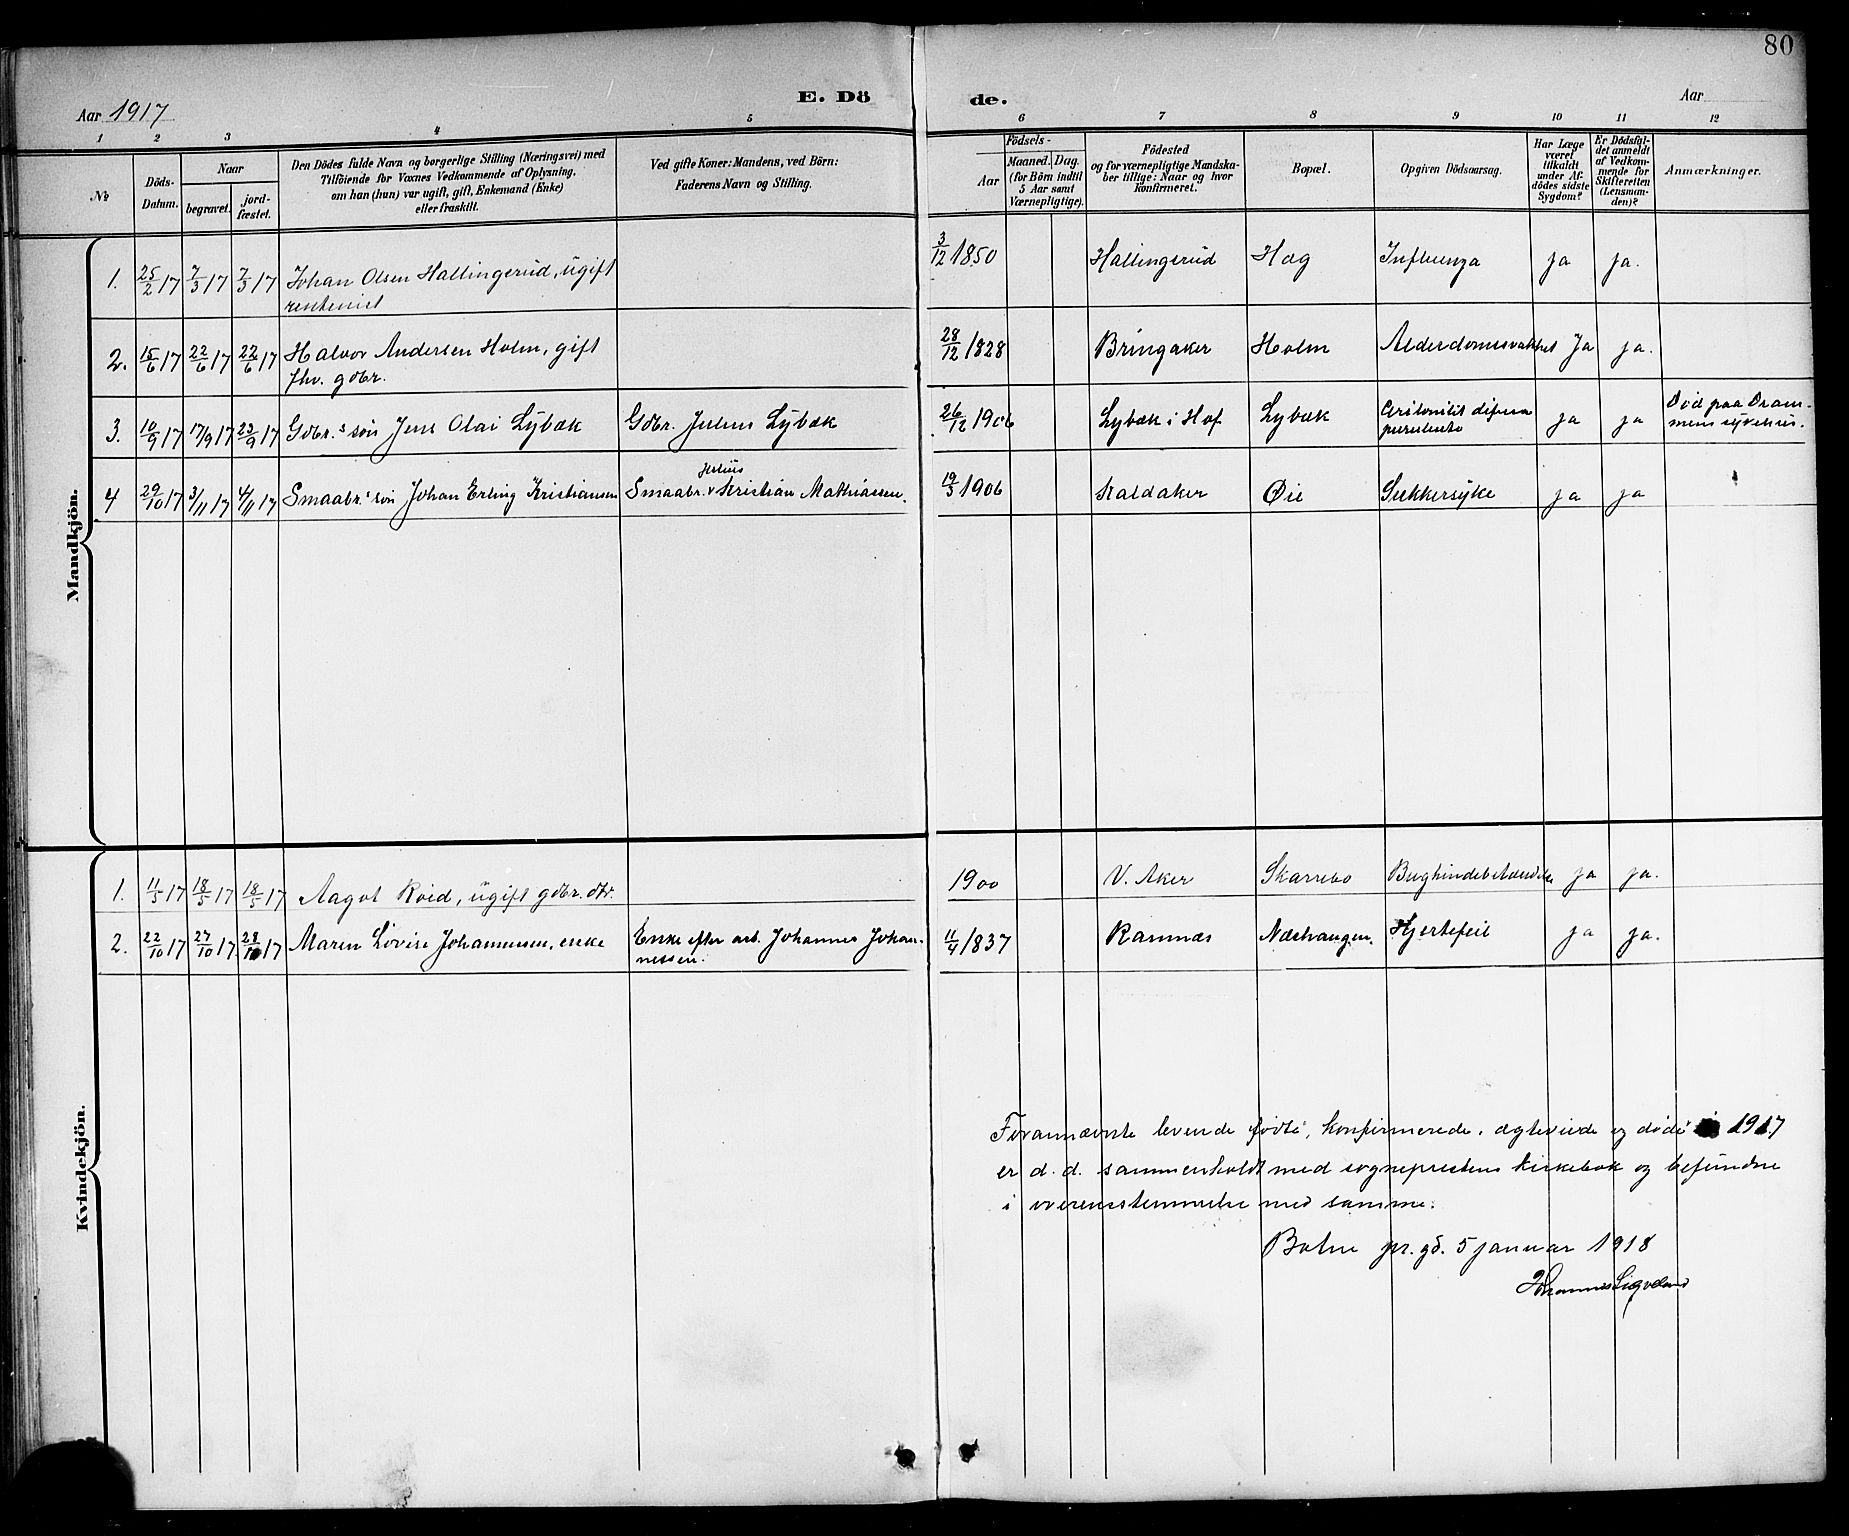 80
E. Dö de.
Aar 1917
Aar
1 2 3 4 5 6 7 8 9 10 11 12
№
Döds-Datum.
Naar
begravet.
jord-fæstet.
Den Dödes fulde Navn og borgerlige Stilling (Næringsvei) med
Tilföiende for Voxnes Vedkommende af Oplysning,
om han (hun) var ugift, gift, Enkemand (Enke)
eller fraskilt.
Ved gifte Koner: Mandens, ved Börn:
Faderens Navn og Stilling.
Födsels-
Aar
Maaned. Dag.
(for Börn indtil
5 Aar samt
Værnepligtige).
Födested
og for værnepligtige Mandska-
ber tillige: Naar og hvor
konfirmeret.
Bopæl.
Opgiven Dödsaarsag.
Har Læge
været
tilkaldt
under Af-
dödes sidste
Sygdom?
Er Dödsfal-
det anmeldt
af Vedkom-
mende for
Skifteretten
(Lensman-
den)?
Anmærkninger.
Mandkjön.
1. 25/2 17 7/3 17 7/3 17 Johan Olsen Hallingerud, ugift 3/12 1850 Hallingerud Hag Influenza ja ja.
rentenist
2. 15/6 17 22/6 17 22/6 17 Halvor Andersen Holm, gift 28/12 1828 Bringaker Holm Alderdomssvakhet Ja ja.
fhv. gdbr.
3. 10/9 17 17/9 17 23/9 17 Gdbr.s søn Jens Olai Lybæk Gdbr. Julius Lybæk 26/12 1906 Lybæk i Hof Lybæk peritonitis difusa ja ja Død paa Dram-
purulenta mens sykehus.
Julius
4 29/10 17 3/11 17 4/11 17 Smaabr.s søn Johan Erling Kristiansen Smaabr. Kristian Mathiassen. 19/3 1906 Kaldaker Øie Sukkersyke ja ja
Kvindekjön.
1. 11/5 17 18/5 17 18/5 17 Aagot Roid, ugift gdbr. dtr. 1900 V. Aker Skarrebo Bughindebetændelse ja ja.
2. 22/10 17 27/10 17 28/10 17 Maren Lovise Johannessen, enke Enke efter arb. Johannes Johan- 11/4 1837 Ramnæs Næshaugen. Hjertefeil ja ja.
nessen.
Forannævnte levende fødte, konfirmerede, ægteviede og døde i 1917
er d. d. sammenholdt med sogneprestens kirkebok og befundne
i overensstemmelse med samme.
Botne pr.gd. 5 januar 1918
Johannes Ligveland